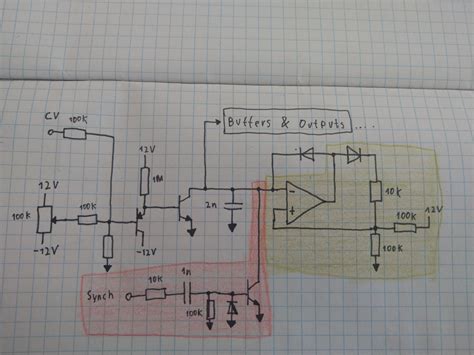 Buffers & Outputs ....
CV
100k
12V
12V
1M
2n
-
+
10k
100k
12V
100k
12V
100k
100k
-12V
-12V
Synch
10k
1n
100k